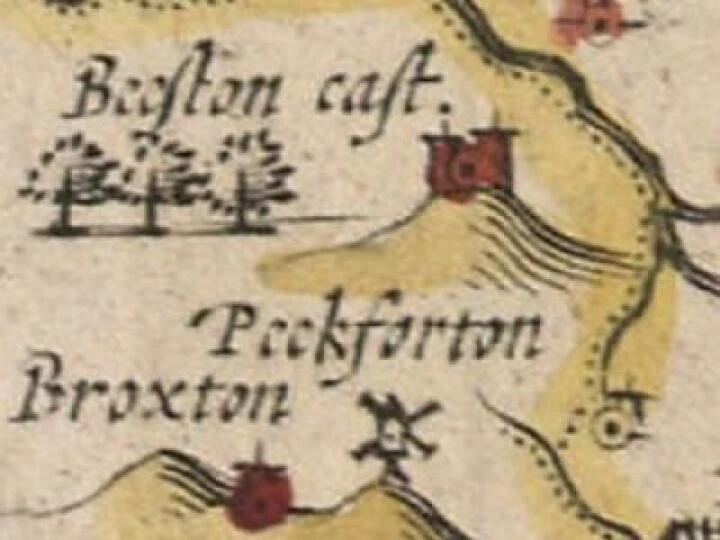 Beeſton caſt.
Peckforton
Broxton